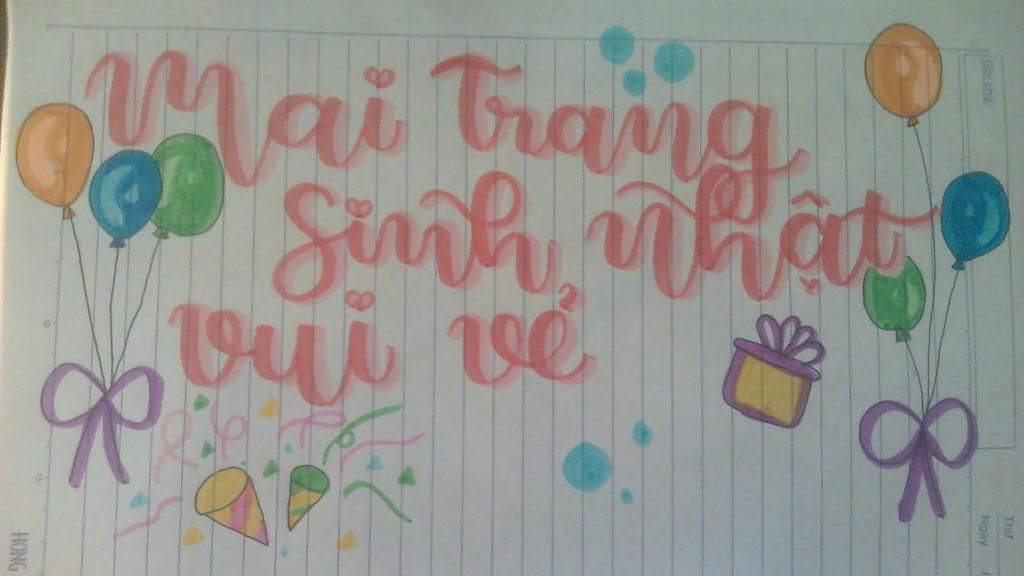 Mai Trang
Sinh nhật
vui vẻ
Ghi chú
Thứ
Ngày
HONG
10
15